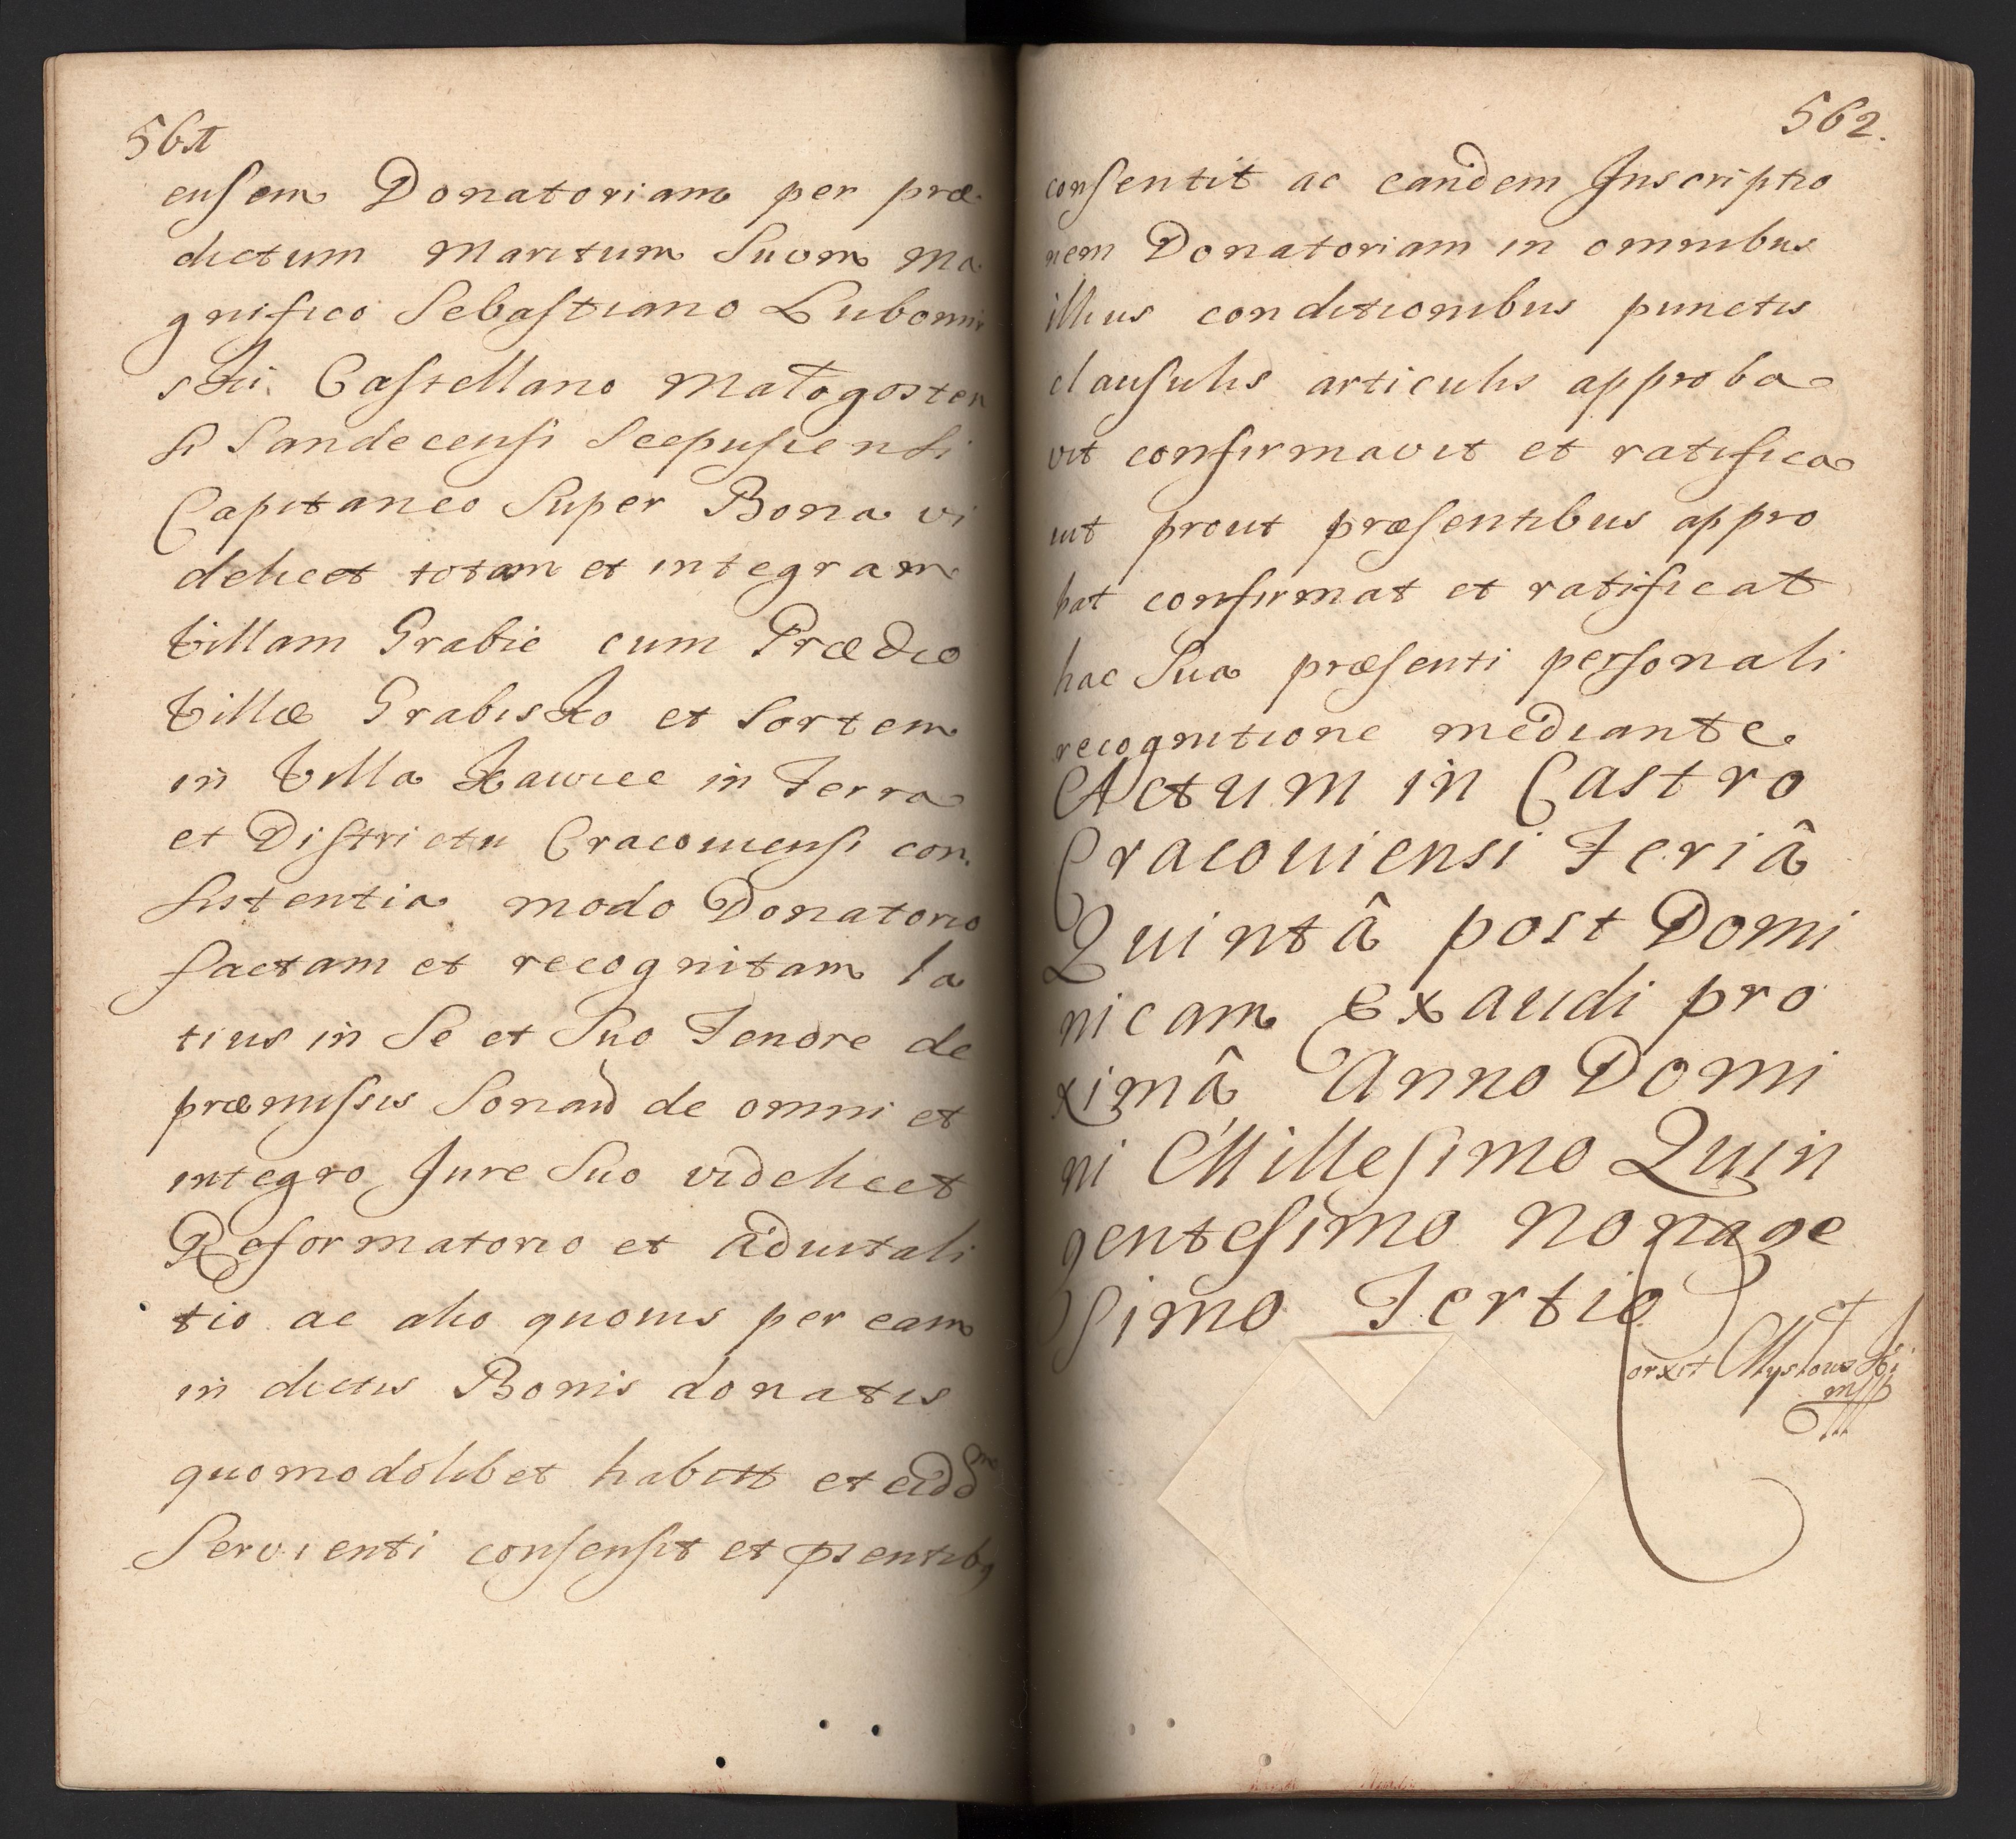 561
ensem Donatoriam per præ
dictum Maritum Suum Ma
gnifico Sebastiano Lubomir
ski Castellano Małogosten
si Sandecensi Scepusiensi
Capitaneo Super Bona vi
delicet totam et integram
Villam Grabie cum Prædio
Villæ Grabisko et Sortem
in Villa Kawiec in Terra
et Districtu Cracoviensi con
sistentia modo Donatorio
factam et recognitam la
tius in Se et Suo Tenore de
præmissis Sonan̄ de omni et
integro Jure Suo videlicet
Reformatorio et Advitali
tio ac alio quovis per eam
in dictis Bonis donatis
quomodolibet habitt et eidd
Servienti consensit et pꝛentibꝯ
562.
consentit ac eandem Inscriptio
nem Donatoriam in omnibus
illius conditionibus punctis
clausulis articulis approba
vit confirmavit et ratifica
uit prout præsentibus appro
bat confirmat et ratificat
hac Sua præsenti personali
recognitione mediante
Actum in Castro
Cracouiensi Feriâ
Quintâ post Domi
nicam Exaudi pro
ximâ Anno Domi
ni Millesimo Quin
gentesimo nonage
simo Tertio